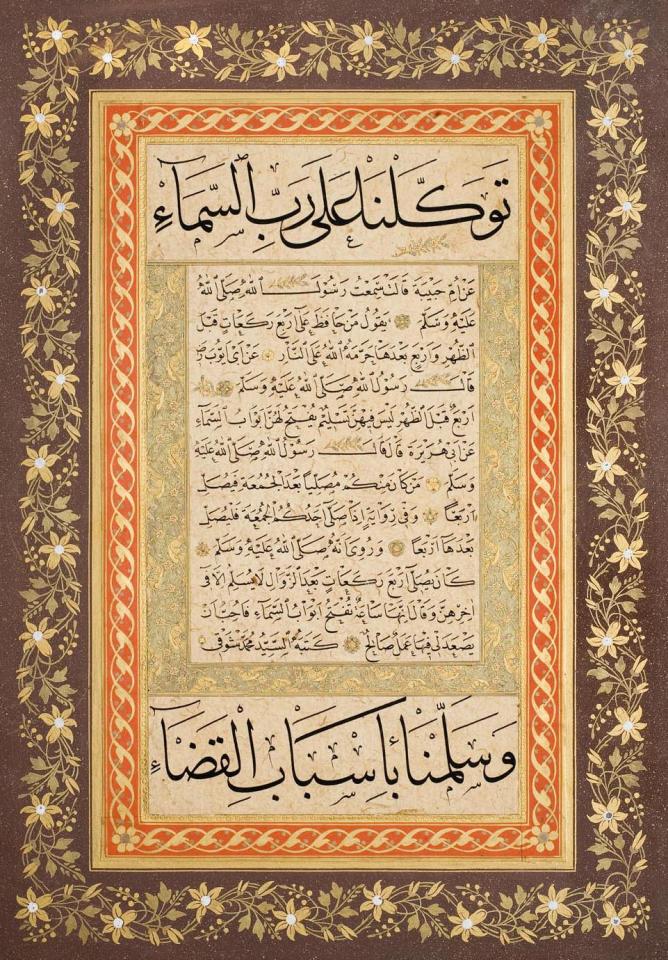 تَوَكَّلْنَا عَلَى رَبِّ السَّمَاءِ
عن ام حبيبة قالت سمعت رسول الله صلى الله
عليه وسلم يقول من حافظ على اربع ركعات قبل
الظهر واربع بعدها حرمه الله على النار عن ابى ايوب رض
قال رسول الله صلى الله عليه وسلم
اربع قبل الظهر ليس فيهن تسليم يفتح لهن ابواب السماء
عن ابى هريرة قال قال رسول الله صلى الله عليه
وسلم من كان منكم مصليا بعد الجمعة فليصل
اربعا وفى رواية اذا صلى احدكم الجمعة فليصل
بعدها اربعا وروى انه صلى الله عليه وسلم
كان يصلى اربع ركعات بعد الزوال لا يسلم الا فى
اخرهن وقال انها ساعة تفتح ابواب السماء فاحب ان
يصعد لى فيها عمل صالح كتبه السيد محمد شوقى
وَسَلَّمْنَا بِأَسْبَابِ الْقَضَاءِ